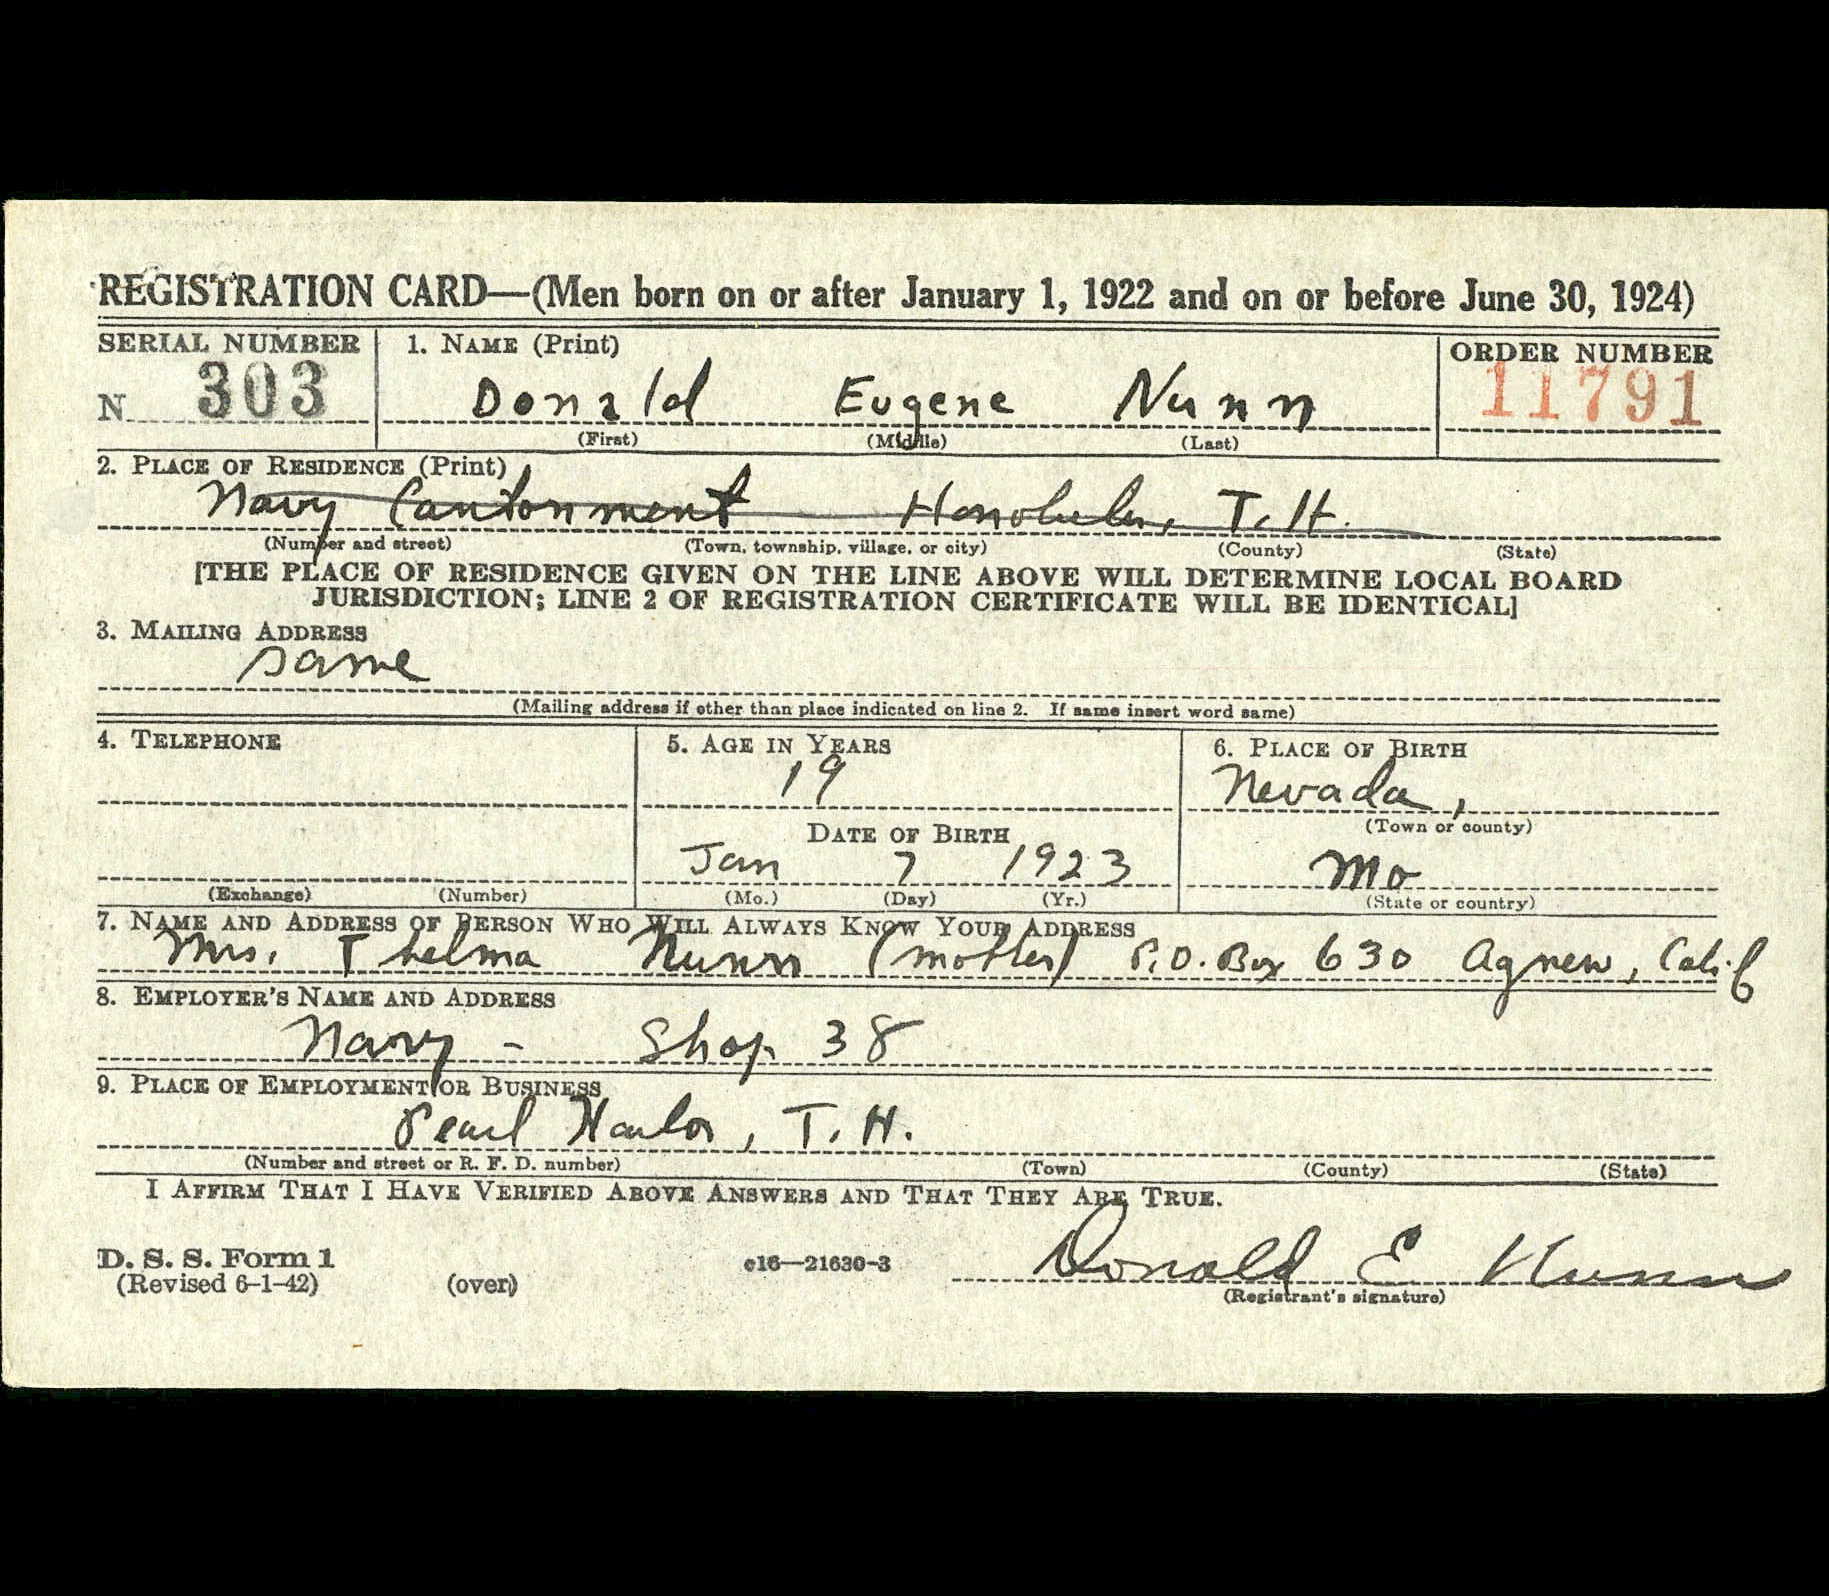 REGISTRATION CARD—(Men born on or after January 1, 1922 and on or before June 30, 1924)
SERIAL NUMBER 1. NAME (Print) ORDER NUMBER
N 303 Donald Eugene Nunn 11791
(First) (Middle) (Last)
2. PLACE OF RESIDENCE (Print)
Navy Cantonment Honolulu, T.H.
(Number and street) (Town, township, village, or city) (County) (State)
[THE PLACE OF RESIDENCE GIVEN ON THE LINE ABOVE WILL DETERMINE LOCAL BOARD
JURISDICTION; LINE 2 OF REGISTRATION CERTIFICATE WILL BE IDENTICAL]
3. MAILING ADDRESS
same
(Mailing address if other than place indicated on line 2. If same insert word same)
4. TELEPHONE 5. AGE IN YEARS 6. PLACE OF BIRTH
19 Nevada,
DATE OF BIRTH (Town or county)
Jan 7 1923 Mo
(Exchange) (Number) (Mo.) (Day) (Yr.) (State or country)
7. NAME AND ADDRESS OF PERSON WHO WILL ALWAYS KNOW YOUR ADDRESS
Mrs. Thelma Nunn (mother) P.O. Box 630 Agnew, Calif
8. EMPLOYER'S NAME AND ADDRESS
Navy - Shop 38
9. PLACE OF EMPLOYMENT OR BUSINESS
Pearl Harbor, T.H.
(Number and street or R. F. D. number) (Town) (County) (State)
I AFFIRM THAT I HAVE VERIFIED ABOVE ANSWERS AND THAT THEY ARE TRUE.
D. S. S. Form 1 c16—21630-3 Donald E Nunn
(Revised 6-1-42) (over) (Registrant's signature)